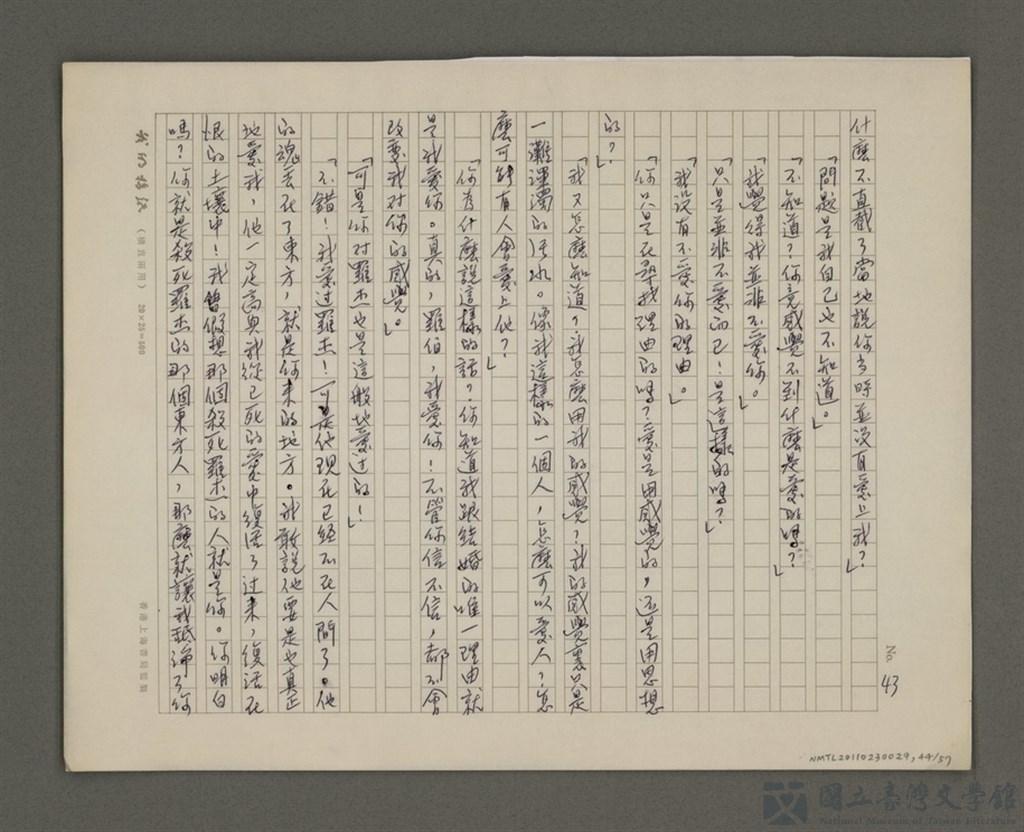 什麼不直截了當地說你当時並沒有愛上我？」
「問題是我自己也不知道。」
「不知道？你竟感覺不到什麼是愛的嗎？」
「我覺得我並非不愛你。」
「只是並非不愛而已！是這樣的嗎？」
「我沒有不愛你的理由。」
「你只是在尋找理由的嗎？愛是用感覺的，还是用思想
的？」
「我又怎麼知道？我怎麼用我的感覺？我的感覺裏只是
一灘渾濁的污水。像我這樣的一個人，怎麼可以愛人？怎
麼可能有人會愛上他？」
「你為什麼說這樣的話？你知道我跟结婚的唯一理由就
是我愛你。真的，羅伯，我愛你！不管你信不信，都不會
改變我对你的感覺。」
「可是你对羅杰也是這般地愛过的！」
「不錯！我愛过羅杰！可是他現在已經不在人間了。他
的魂丟在了東方，就是你来的地方。我敢說他要是也真正
地愛我，他一定高興我從已死的愛中復活了过来，復活在
恨的土壤中！我曾假想那個殺死羅杰的人就是你。你明白
嗎？你就是殺死羅杰的那個東方人，那麼就讓我舐淨了你
No. 43
我的稿紙
（橫直兩用）
20×25=500
香港上海書局監製
NMTL20110230029, 44/57
國立臺灣文學館
National Museum of Taiwan Literature